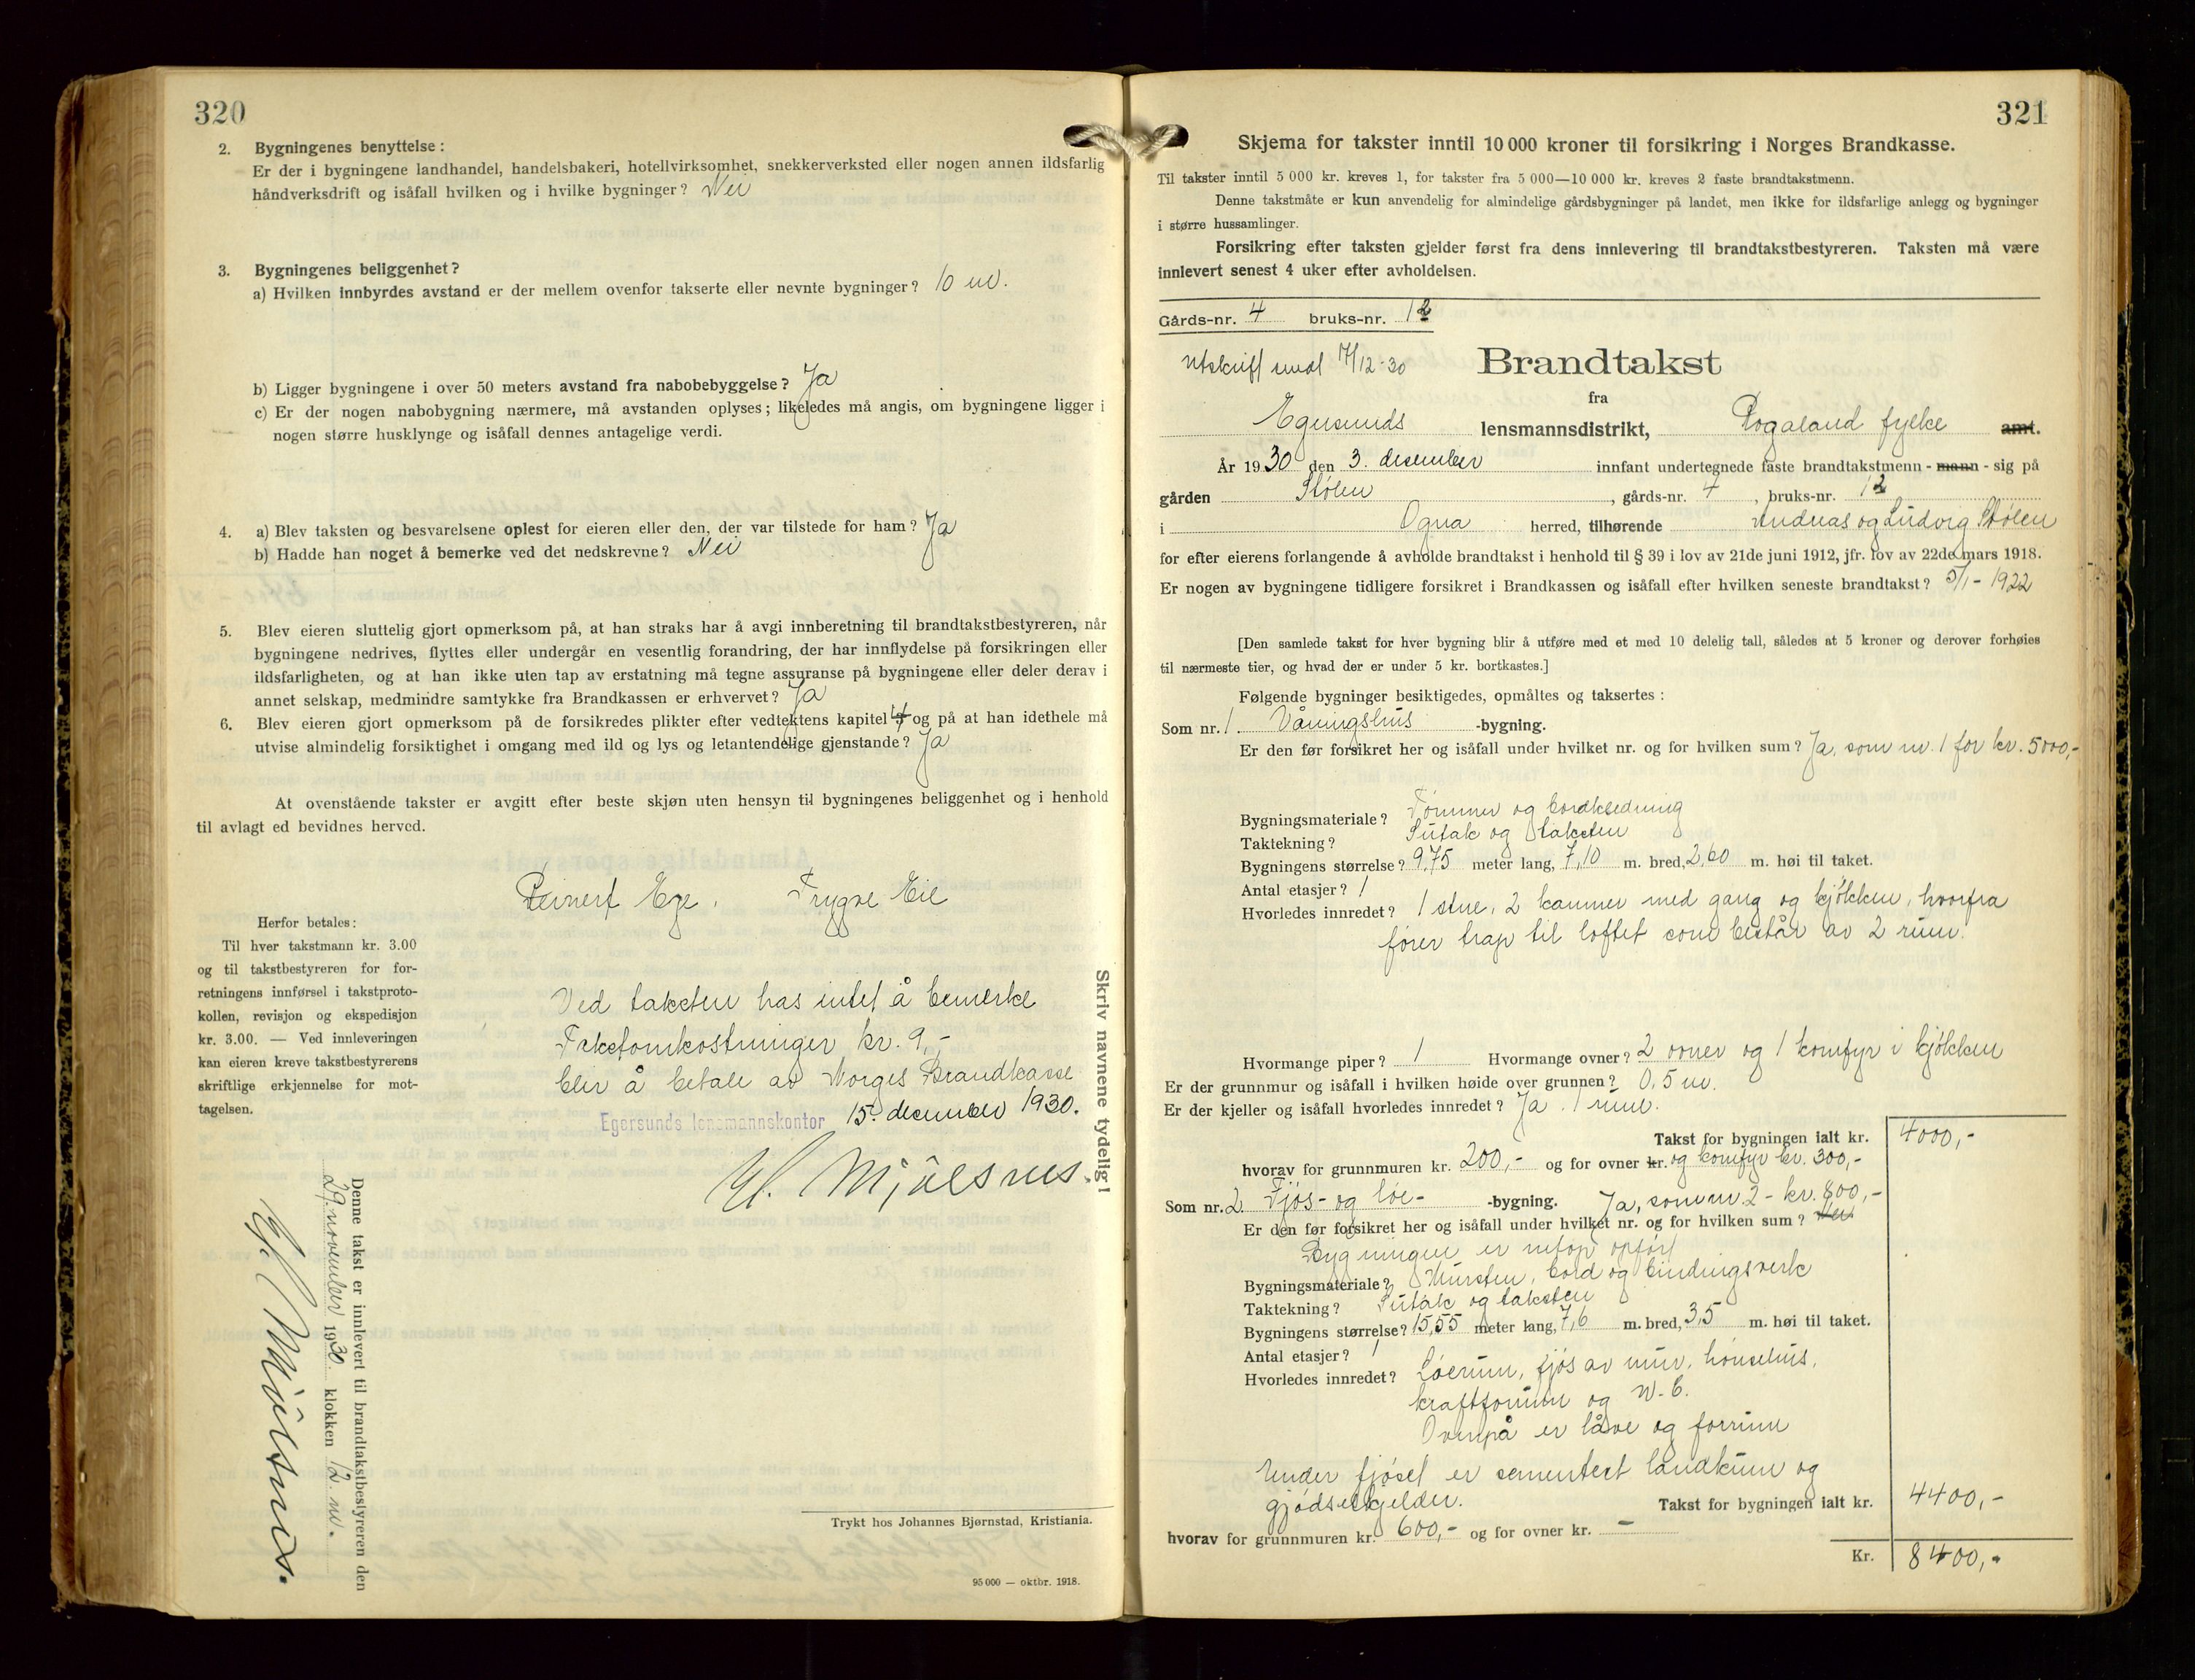 320
2. Bygningenes benyttelse:
Er der i bygningene landhandel, handelsbakeri, hotellvirksomhet, snekkerverksted eller nogen annen ildsfarlig
håndverksdrift og isåfall hvilken og i hvilke bygninger? Nei
3. Bygningenes beliggenhet?
a) Hvilken innbyrdes avstand er der mellem ovenfor takserte eller nevnte bygninger? 10 m.
b) Ligger bygningene i over 50 meters avstand fra nabobebyggelse? Ja
c) Er der nogen nabobygning nærmere, må avstanden oplyses; likeledes må angis, om bygningene ligger i
nogen større husklynge og isåfall dennes antagelige verdi.
4. a) Blev taksten og besvarelsene oplest for eieren eller den, der var tilstede for ham? Ja
b) Hadde han noget å bemerke ved det nedskrevne? Nei
5. Blev eieren sluttelig gjort opmerksom på, at han straks har å avgi innberetning til brandtakstbestyreren, når
bygningene nedrives, flyttes eller undergår en vesentlig forandring, der har innflydelse på forsikringen eller
ildsfarligheten, og at han ikke uten tap av erstatning må tegne assuranse på bygningene eller deler derav i
annet selskap, medmindre samtykke fra Brandkassen er erhvervet? Ja
6. Blev eieren gjort opmerksom på de forsikredes plikter efter vedtektens kapitel 4 og på at han idethele må
utvise almindelig forsiktighet i omgang med ild og lys og letantendelige gjenstande? Ja
At ovenstående takster er avgitt efter beste skjøn uten hensyn til bygningenes beliggenhet og i henhold
til avlagt ed bevidnes herved.
Reinert Ege. Trygve Eie
Herfor betales:
Til hver takstmann kr. 3.00
og til takstbestyreren for for-
retningens innførsel i takstproto-
kollen, revisjon og ekspedisjon
kr. 3.00. — Ved innleveringen
kan eieren kreve takstbestyrerens
skriftlige erkjennelse for mot-
tagelsen.
Ved taksten has intet å bemerke
Takstomkostninger kr. 9,-
blir å betale av Norges Brandkasse
Egersunds lensmannskontor 15. december 1930.
M. Mjølsnes.
Skriv navnene tydelig!
Denne takst er innlevert til brandtakstbestyreren den
29 november 1930 klokken 12. m.
M. Mjølsnes.
Trykt hos Johannes Bjørnstad, Kristiania.
95 000 — oktbr. 1918.
321
Skjema for takster inntil 10 000 kroner til forsikring i Norges Brandkasse.
Til takster inntil 5 000 kr. kreves 1, for takster fra 5 000—10 000 kr. kreves 2 faste brandtakstmenn.
Denne takstmåte er kun anvendelig for almindelige gårdsbygninger på landet, men ikke for ildsfarlige anlegg og bygninger
i større hussamlinger.
Forsikring efter taksten gjelder først fra dens innlevering til brandtakstbestyreren. Taksten må være
innlevert senest 4 uker efter avholdelsen.
Gårds-nr. 4 bruks-nr. 12
Utskrift 17/12-30
Brandtakst
fra
Egersunds lensmannsdistrikt, Rogaland fylke amt.
År 1930 den 3. desember innfant undertegnede faste brandtakstmenn - mann - sig på
gården Stølen, gårds-nr. 4, bruks-nr. 12
i Ogna herred, tilhørende Andreas og Ludvig Stølen
for efter eierens forlangende å avholde brandtakst i henhold til § 39 i lov av 21de juni 1912, jfr. lov av 22de mars 1918.
Er nogen av bygningene tidligere forsikret i Brandkassen og isåfall efter hvilken seneste brandtakst? 5/1 - 1922
[Den samlede takst for hver bygning blir å utføre med et med 10 delelig tall, således at 5 kroner og derover forhøies
til nærmeste tier, og hvad der er under 5 kr. bortkastes.]
Følgende bygninger besiktigedes, opmåltes og taksertes:
Som nr. 1 Våningshus -bygning.
Er den før forsikret her og isåfall under hvilket nr. og for hvilken sum? Ja, som nr. 1 for kr. 5000,-
Bygningsmateriale? Tømmer og bordkledning
Taktekning? Sutak og taksten
Bygningens størrelse? 9,75 meter lang, 7,10 m. bred, 2,60 m. høi til taket.
Antal etasjer? 1
Hvorledes innredet? 1 stue, 2 kammer med gang og kjøkken, hvorfra
fører trap til loftet som består av 2 rum.
Hvormange piper? 1 Hvormange ovner? 2 ovner og 1 komfyr i kjøkken
Er der grunnmur og isåfall i hvilken høide over grunnen? 0,5 m.
Er der kjeller og isåfall hvorledes innredet? Ja. 1 rum.
Takst for bygningen ialt kr. 4000,-
hvorav for grunnmuren kr. 200,- og for ovner kr. og komfyr kr. 300,-
Som nr. 2 Fjøs- og løe- -bygning. Ja, som nr 2 - kr. 800,-
Er den før forsikret her og isåfall under hvilket nr. og for hvilken sum? Nei
Bygningen er netop opført
Bygningsmateriale? Mursten, bord og bindingsverk
Taktekning? Sutak og taksten
Bygningens størrelse? 15,55 meter lang, 7,6 m. bred, 3,5 m. høi til taket.
Antal etasjer? 1
Hvorledes innredet? Løerum, fjøs av mur, hønsehus,
kraftforrum og W.C.
Ovenpå er låve og forrum
Under fjøset er sementert landkum og
gjødselkjelder. Takst for bygningen ialt kr. 4400,-
hvorav for grunnmuren kr. 600,- og for ovner kr. -
Kr. 8400,-